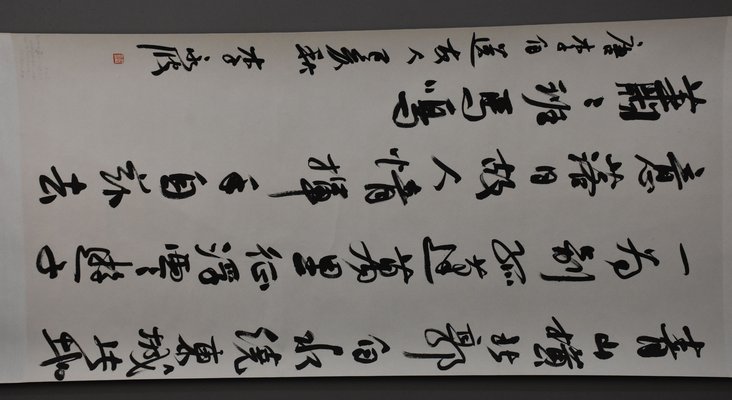 青山橫北郭白水遶東城此地
一為別孤蓬萬里征浮雲遊子
意落日故人情揮手自茲去
蕭〻班馬鳴
唐李白送友人乙亥秋李